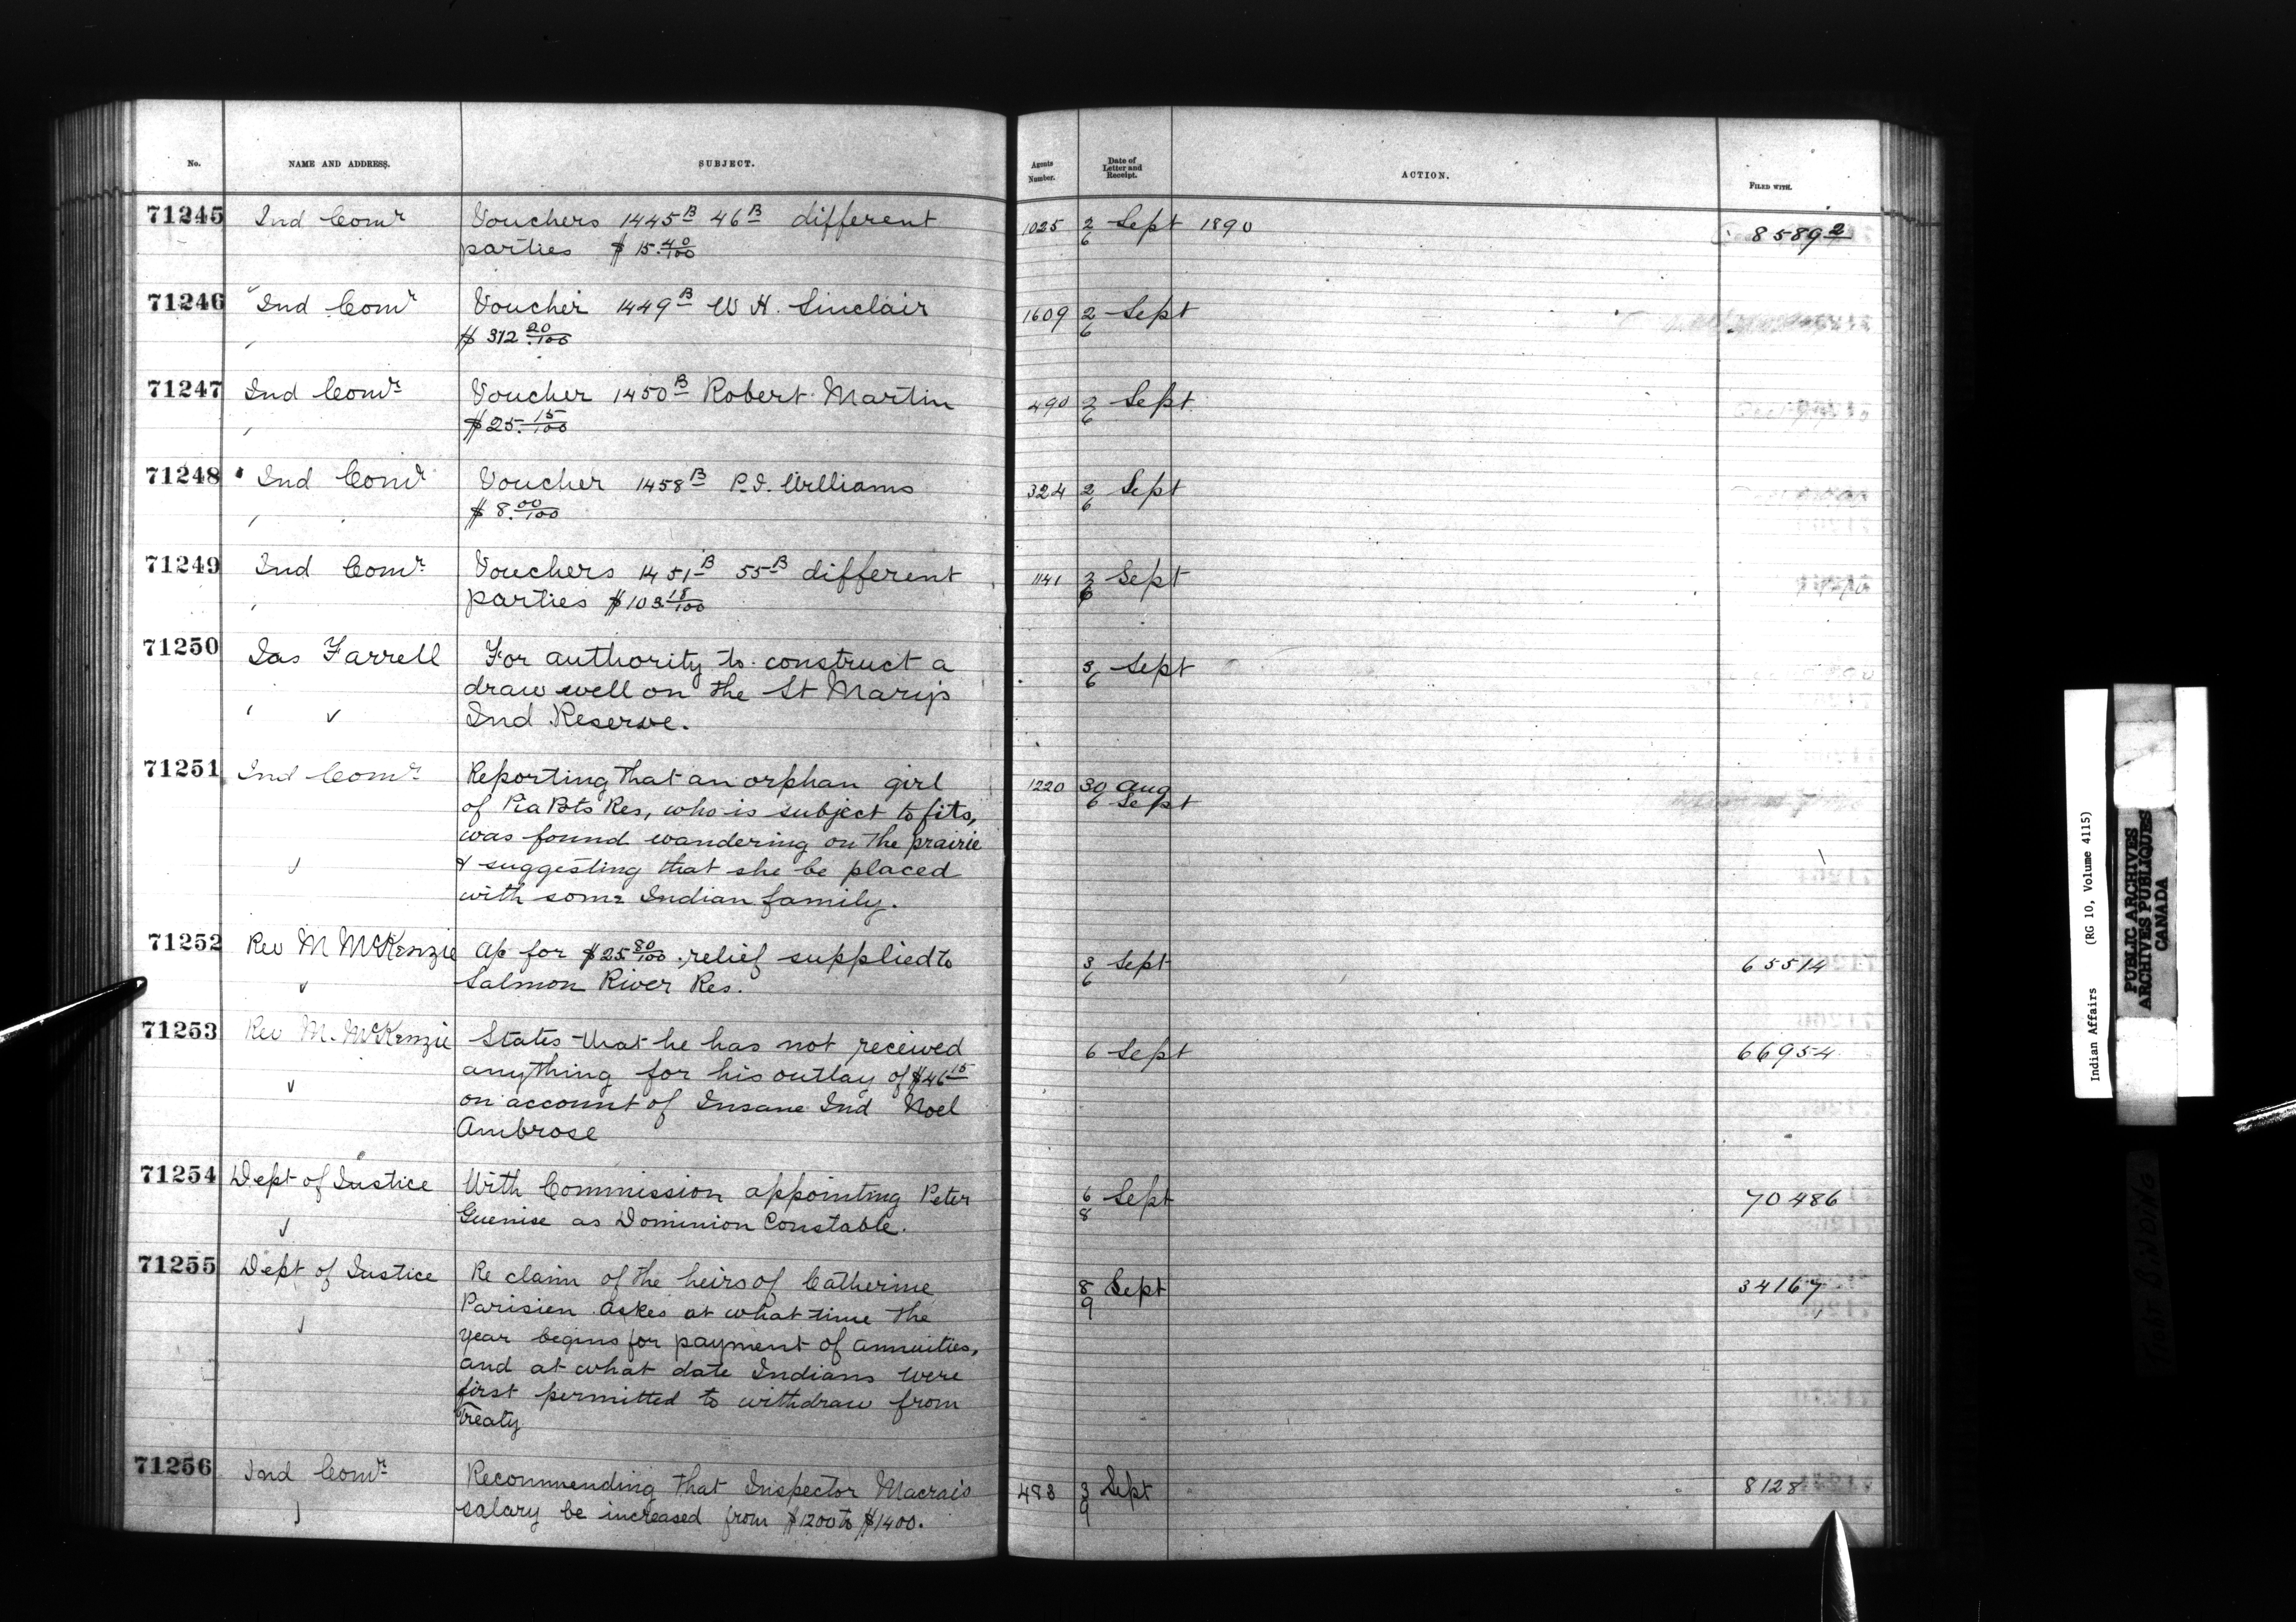 No. NAME AND ADDRESS. SUBJECT. Agents Number. Date of Letter and Receipt. ACTION. FILED WITH.
71245 Ind Comr Vouchers 1445B 46B different 1025 2 Sept 1890 85892
parties $15.40/100 6
71246 Ind Comr Voucher 1449B W H. Sinclair 1609 2 Sept
$312.20/100 6
71247 Ind Comr Voucher 1450B Robert Martin 490 2 Sept
$25.15/100 6
71248 Ind Comr Voucher 1458B P.I. Williams 324 2 Sept
$8.00/100 6
71249 Ind Comr Vouchers 1451B 55B different 1141 2 Sept
parties $103.15/100 6
71250 Jas Farrell For authority to construct a 3 Sept
draw well on the St Marys 6
Ind Reserve.
71251 Ind Comr Reporting that an orphan girl 1220 30 Aug
of Pia Pots Res, who is subject to fits, 6 Sept
was found wandering on the prairie
& suggesting that she be placed
with some Indian family.
71252 Rev M McKenzie Ap for $25.80/100 relief supplied to 3 Sept 65514
Salmon River Res. 6
71253 Rev M. McKenzie States that he has not received 6 Sept 66954
anything for his outlay of $46 15
on account of Insane Ind Noel
Ambrose
71254 Dept of Justice With Commission appointing Peter 6 Sept 70486
Guenise as Dominion Constable. 8
71255 Dept of Justice Re claim of the heirs of Catherine 8 Sept 34167
Parisien Askes at what time the 9
year begins for payment of annuities,
and at what date Indians were
first permitted to withdraw from
Treaty
71256 Ind Comr Recommending that Inspector Macrais 493 3 Sept 8128
salary be increased from $1200 to $1400. 9
Indian Affairs (RG 10, Volume 4115)
PUBLIC ARCHIVES
ARCHIVES PUBLIQUES
CANADA
TIGHT BINDING